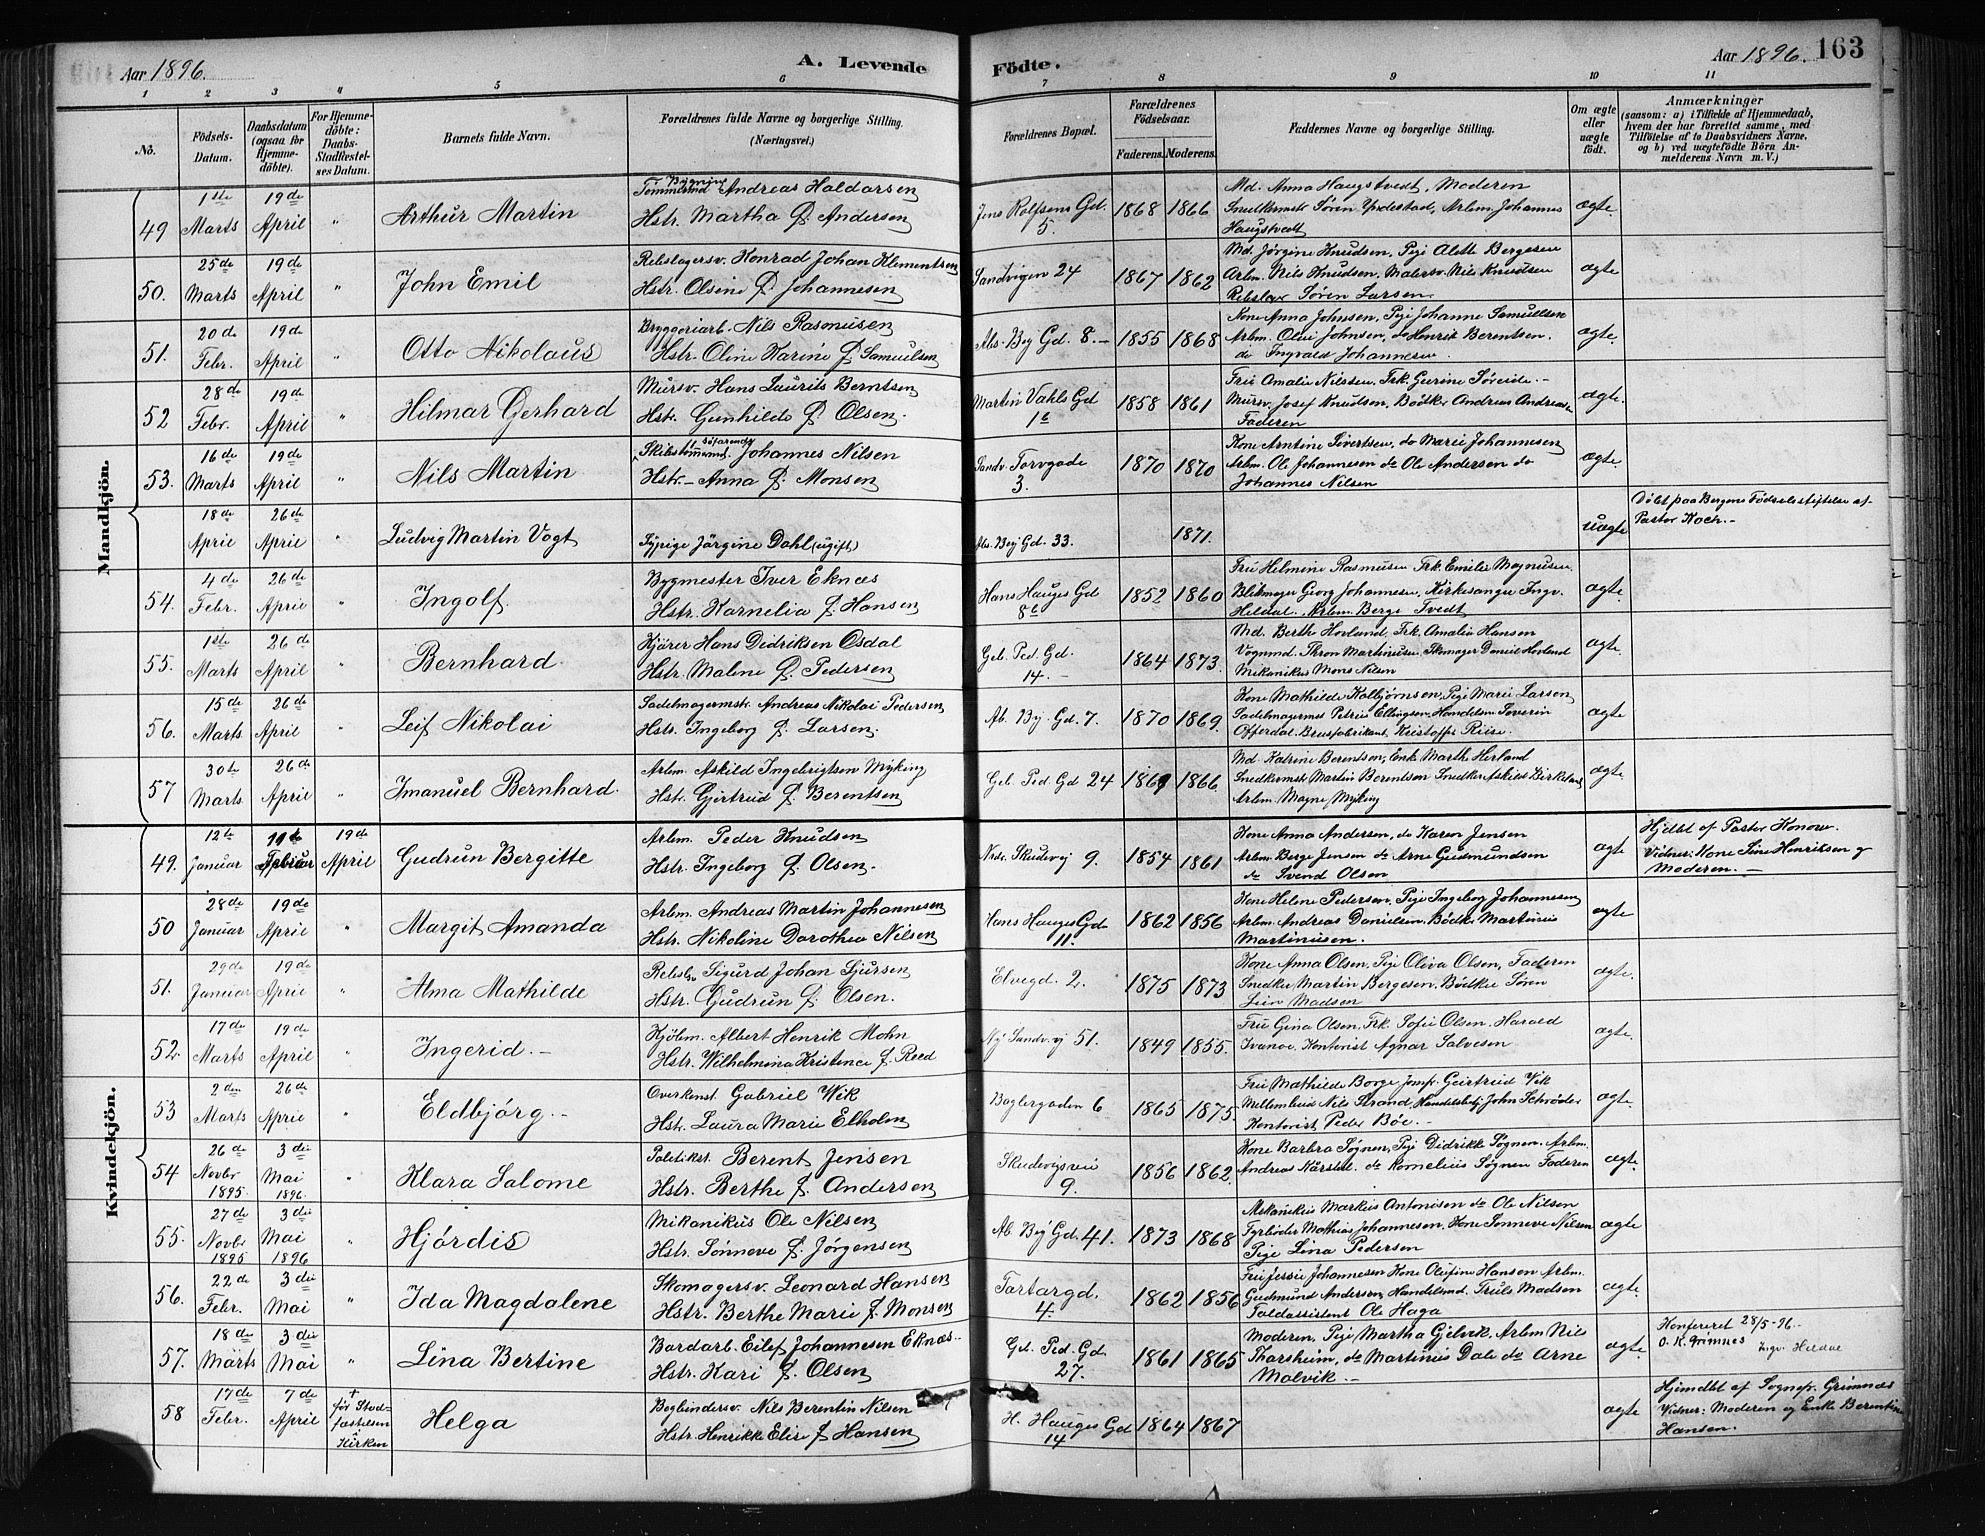 Aar 1896.
A. Levende Födte.
Aar 1896. 163
1 2 3 4 5 6 7 8 9 10 11
No.
Födsels-Datum.
Daabsdatum (ogsaa for Hjemme-döbte).
For Hjemme-döbte: Daabs-Stadfæstel-ses Datum.
Barnets fulde Navn.
Forældrenes fulde Navne og borgerlige Stilling. (Næringsvei.)
Forældrenes Bopæl.
Forældrenes Födselsaar.
Faderens. Moderens.
Faddernes Navne og borgerlige Stilling.
Om ægte eller uægte födt.
Anmærkninger (saasom: a) i Tilfælde af Hjemmedaab, hvem der har forrettet samme, med Tilföielse af to Daabsvidners Navne. og b) ved uægtefödte Börn An-melderens Navn m. V.)
Mandkjön.
49 1ste Marts 19de April " Arthur Martin
Tömmermd Andreas Haldorsen
Hstr. Martha f. Andersen
Jens Rolfsens Gd. 5. 1868 1866
Md. Anna Haugstvedt, Moderen
Snedkermstr Sören Yndestad, Arbm. Johannes
Haugstvedt
ægte
50. 25de Marts 19de April " John Emil
Rebslagersv. Konrad Johan Klementsen
Hstr. Olsine f. Johannesen
Sandvigen 24 1867 1862
Md. Jörgine Knudsen, Pige Alette Bergesen
Arbm. Nils Knudsen, Malersv. Nils Knudsen
Rebslag Sören Larsen
ægte
51. 20de Febr. 19de April " Otto Nikolaus
Bryggeriarb. Nils Rasmusen
Hstr. Oline Karine f. Samuelsen
Abs. Bej Gd. 8. 1855 1868
Kone Anna Johnsen, Pige Johanne Samuelsen
Arbm. Oluf Johnsen, do Henrik Berentsen.
do Ingvald Johannesen
ægte
52 28de Febr. 19de April " Hilmar Gerhard
Mursv. Hans Laurits Berntsen
Hstr. Gunhilde f. Olsen.
Martin Vahls Gd 1b 1858 1861
Fru Amalie Nilssen, Frk. Geerine Söreide.
Mursv. Josef Knudsen, Bödker Andreas Andreasen
Faderen
ægte.
53. 16de Marts 19de April " Nils Martin
Skibstömmd. Johannes Nilsen
Hstr. Anna f. Monsen
Sandv. Torvgade 3. 1870 1870
Kone Arntine Sivertsen, do Marie Johannesen
Arbm. Ole Johannesen do Ole Andersen do
Johannes Nilsen
ægte.
18de April 26de April " Ludvig Martin Vogt
Sypige Jörgine Dahl (ugift)
Abs. Bej Gd. 33. 1871.
uægte
Döbt paa Bergens Födselsstiftelse af
Pastor Koch.
54. 4de Febr. 26de April " Ingolf.
Bygmester Iver Eknæs
Hstr. Karnelia f. Hansen
Hans Hauges Gd 8b 1852 1860
Fru Helmine Rasmusen Frk. Emilie Magnusen.
Blikmager Georg Johannesen, Kirkesanger Ingv.
Heldal. Arbm. Berge Tvedt
ægte
55. 1ste Marts 26de April " Bernhard.
Kjörer Hans Didriksen Osdal
Hstr. Malene f. Pedersen
Geb. Ped. Gd. 14. 1864 1873.
Md. Berthe Hovland. Frk. Amalia Hansen
Vognmd. Thron Martinusen, Skomager Daniel Hovland
Mikanikus Mons Nilsen
ægte
56. 15de Marts 26de April " Leif Nikolai
Sadelmagermstr. Andreas Nikolai Pedersen
Hstr. Ingeborg f. Larsen.
Ab. Bej. Gd. 7. 1870 1869.
Kone Mathilde Kolbjörnsen, Pige Marie Larsen
Sadelmagermst Petrus Ellingsen Handelsm Severin
Offerdal. Brusfabrikant, Kristoffer Riise.
ægte
57 30te Marts 26de April " Imanuel Bernhard.
Arbm. Askild Ingebrigtsen Myking
Hstr. Gjertrud f. Berentsen
Geb Ped Gd 24 1866
Md. Katrine Berentsen, Enk Marthe Herland
Snedkermst Martin Berentsen Snedker Askild Birkeland
Arbm. Magne Myking
ægte
Kvindekjön.
49. 12te Januar Februar 19de April Gudrun Bergitte
Arbm. Peder Knudsen
Hstr. Ingeborg f. Olsen.
Ndr. Skudevj 9. 1854 1861
Kone Anna Andersen, do Karen Jensen
Arbm. Berge Jensen do Arne Gudmundsen
do Svend Olsen
ægte
Hjdbt af Pastor Konow.
Vidner: Kone Sine Henriksen g
Moderen.
50 28de Januar 19de April " Margit Amanda
Arbm. Andreas Martin Johannesen
Hstr. Nikoline Dorothea Nilsen
Hans Hauges Gd. 11. 1862 1856
Kone Helene Pedersen, Pige Ingeborg Johannesen
Arbm. Andreas Danielsen, Bödk. Martinus
Martinusen.
ægte
51. 29de Januar 19de April " Alma Mathilde
Rebsl. Sigurd Johan Sjursen
Hstr. Gudrun f. Olsen.
Elvegd. 2. 1875 1873
Kone Anna Olsen, Pige Oliva Olsen, Faderen
Snedker Martin Bergesen, Bödker Sören
Madsen
ægte.
52. 17de Marts 19de April " Ingerid.
Kjöbm. Albert Henrik Mohn
Hstr. Wilhelmina Kristence f. Reed
Ny Sandv. vj 51. 1849 1855.
Fru Gina Olsen, Frk. Sofie Olsen, Harald
Ivanow. Kontorist Agnar Salvesen
ægte
53 2den Marts 26de April " Eldbjörg.
Overkonst. Gabriel Wik
Hstr. Laura Marie Elholm
Baglergaden 6 1865 1875.
Fru Mathilde Borge Jomf. Gjertrud Vik
Nils Strand, Handelsbetj John Schröder
Kontorist Peder Böe.
ægte.
54 26de Novbr 1895 3die Mai 1896. " Klara Salome
Politikst. Berent Jensen
Hstr. Berthe f. Andersen
Skudevigsvei 9. 1856 1862.
Kone Barbra Sögnen, Pige Didrikke Sögnen. Arbm.
Andreas Kårstad. do Kornelius Sögnen Faderen
ægte.
55. 27de Novbr 1895 3die Mai 1896 " Hjördis
Mikanikus Ole Nilsen
Hstr. Sönneve f. Jörgensen
Ab. Bej Gd. 41. 1873 1868
Mekanikus Markus Antonisen do Ole Nilsen
Fyrböder Mathias Johannesen. Kone Sönneve Nilsen
Pige Lina Pedersen
ægte
56. 22de Febr. 3die Mai " Ida Magdalene
Skomagersv. Leonard Hansen
Hstr. Berthe Marie f. Monsen
Tartargd. 4. 1862 1856
Fru Jessie Johannesen Kone Olufine Hansen Arbm.
Gudmund Andersen, Handelsmd. Truls Madsen
Toldassistent Ole Haga
ægte.
57. 18de Marts 3die Mai " Lina Bertine
Bordarb. Eilef Johannesen Eknæs.
Hstr. Kari f. Olsen
Gd. Ped. Gd. 27. 1861 1865
Moderen, Pige Martha Gjelvik, Arbm Nils
Tharsheim, do Martinus Dale do Arne
Molvik.
ægte.
Konfereret 28/5-96.
O. K. Grimnes Ingv. Heldal
58 17de Febr. 7de April + för Stad-fæstelsen i Kirken Helga
Bogbindersv. Nils Berentin Nilsen
Hstr. Henrikke Elise f. Hansen
H. Hauges Gd 14 1864 1867
ægte
Hjemdbt af Sognepr. Grimnæs
Vidner: Moderen og Enke Berentine
Hansen.